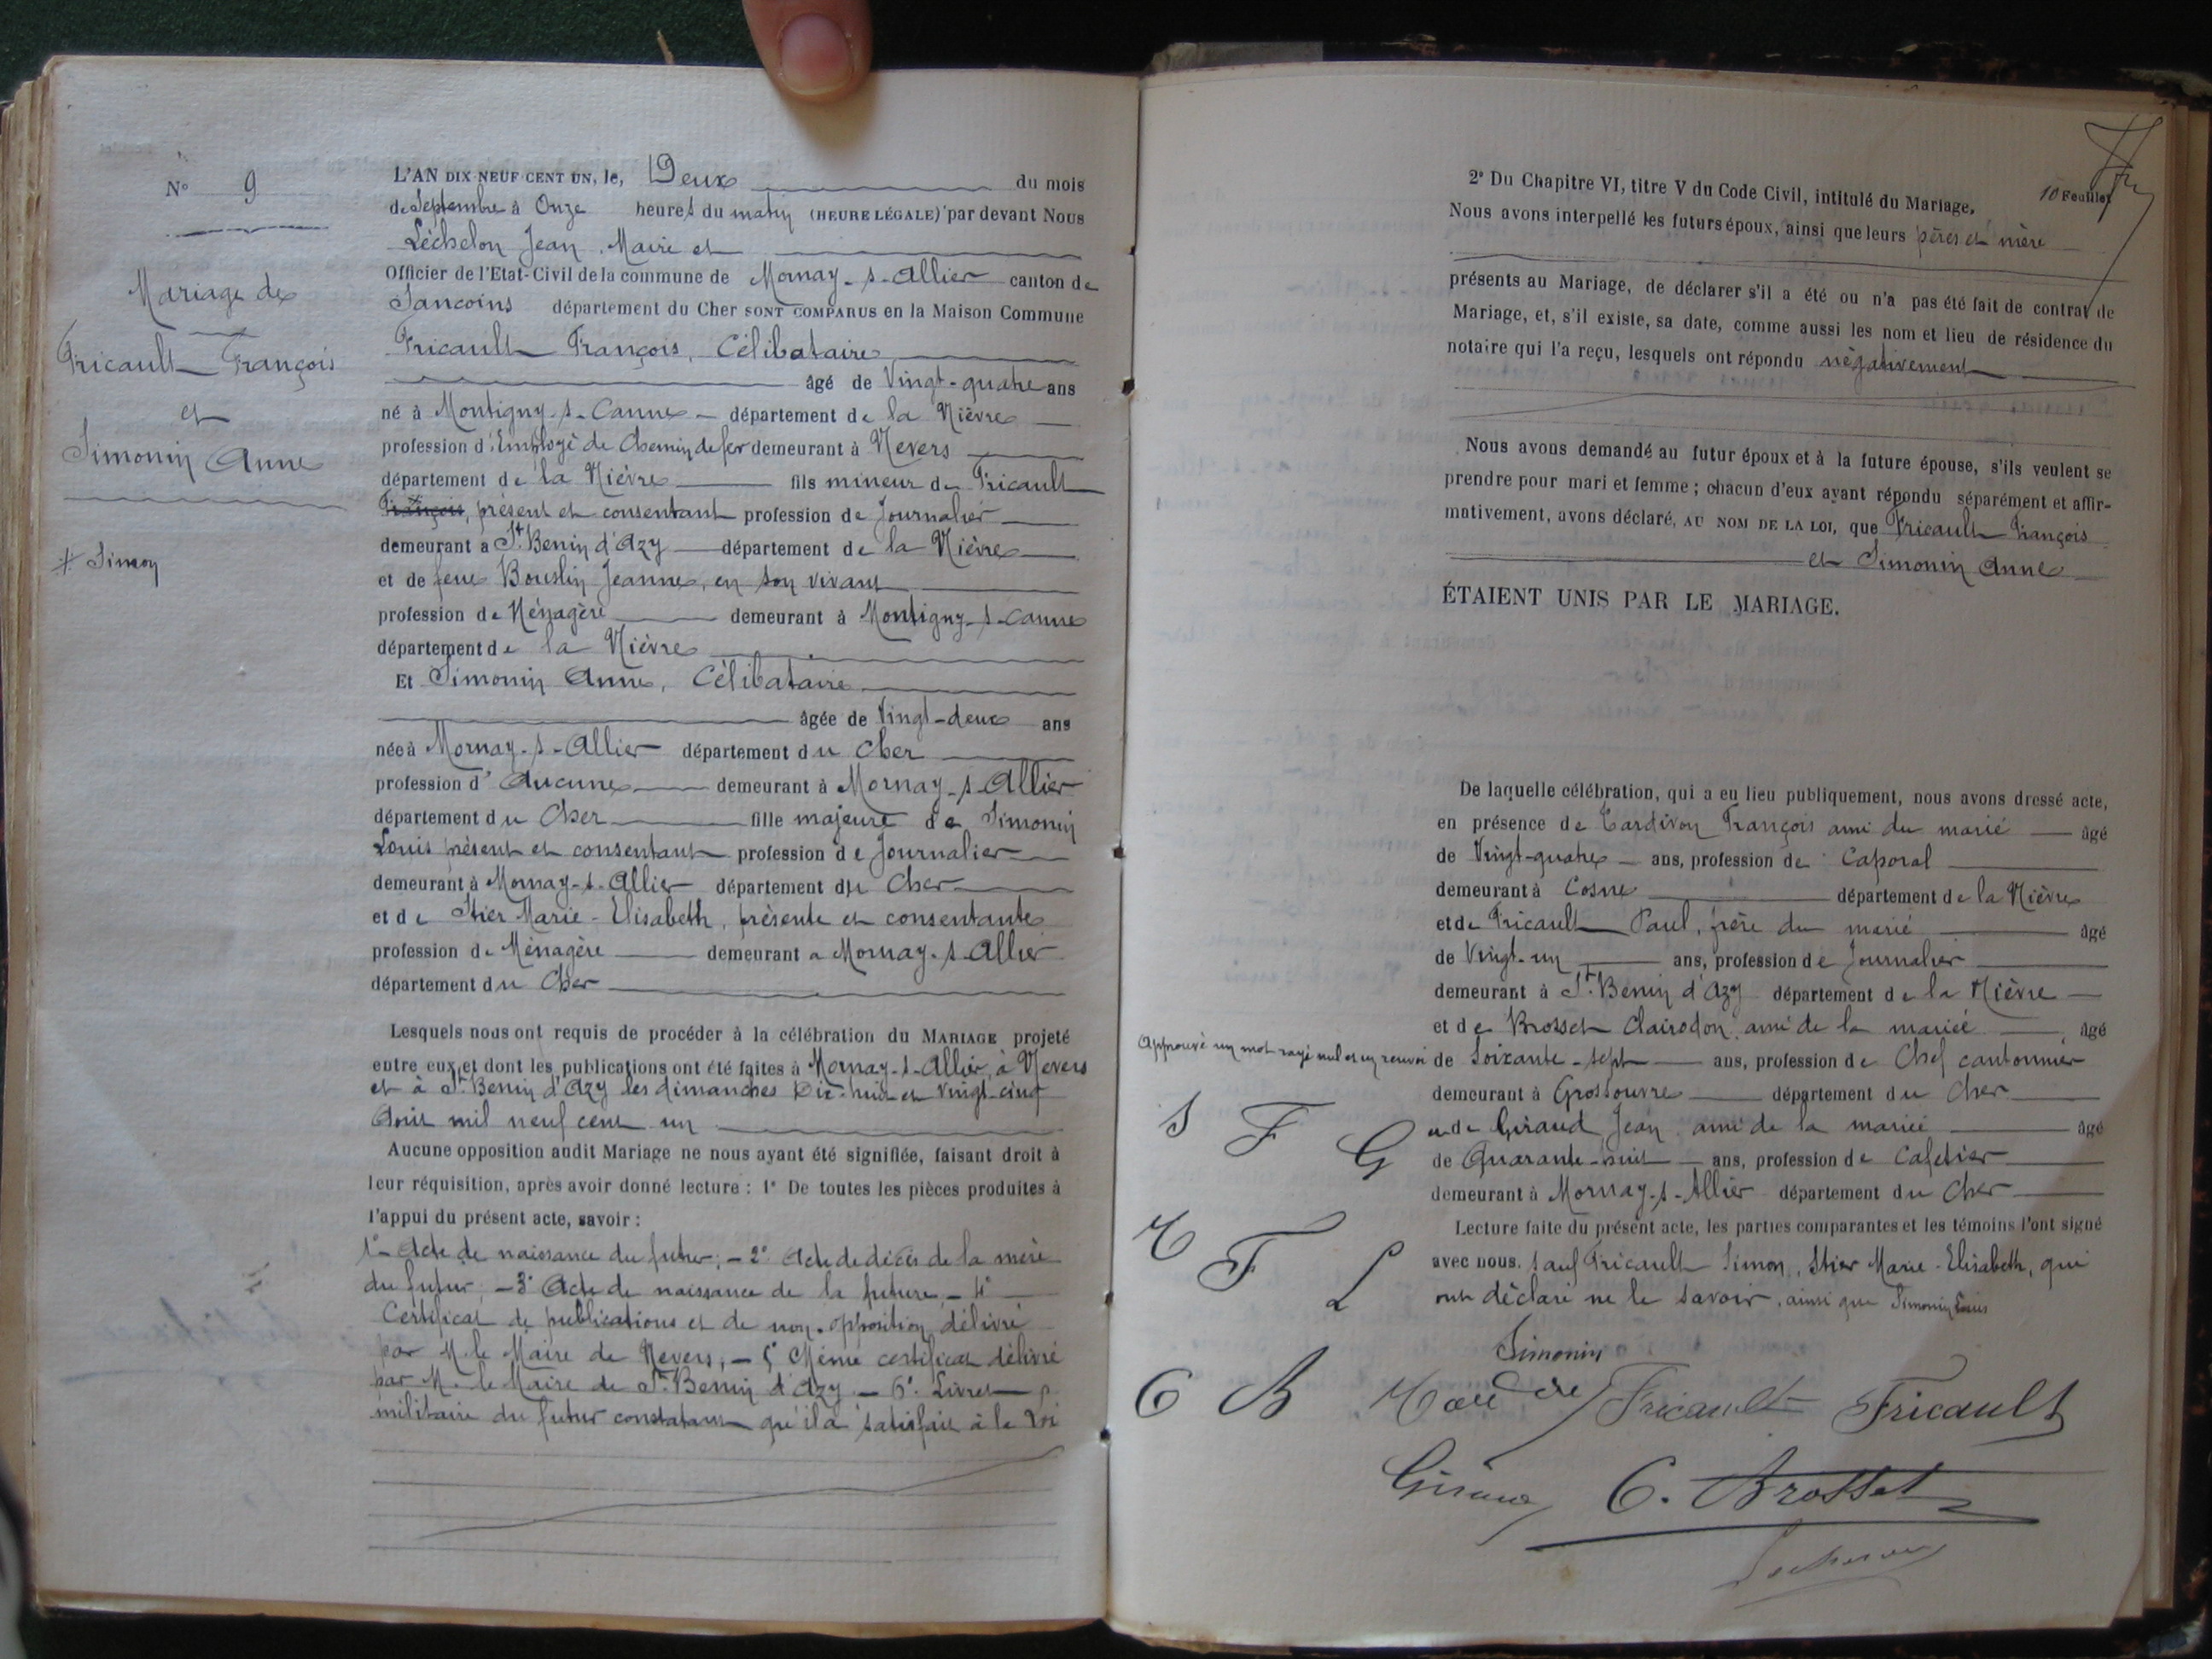 N° 9
Mariage de
Fricault François
et
Simonin Anne
# Simon
L'AN DIX NEUF CENT UN, le, Deux du mois
de Septembre à Onze heures du matin (HEURE LÉGALE) par devant Nous
Léchelon Jean, Maire et
Officier de l'Etat-Civil de la commune de Mornay-s-Allier canton de
Sancoins département du Cher SONT COMPARUS en la Maison Commune
Fricault François, Célibataire
âgé de Vingt-quatre ans
né à Montigny-s-Canne département de la Nièvre
profession d'Employé de Chemin de fer demeurant à Nevers
département de la Nièvre fils mineur de Fricault
François, présent et consentant profession de Journalier
demeurant à St Benin d'Azy département de la Nièvre
et de feue Bouslin Jeanne, en son vivant
profession de Ménagère demeurant à Montigny-s-Canne
département de la Nièvre
Et Simonin Anne, Célibataire
âgée de Vingt-deux ans
née à Mornay-s-Allier département du Cher
profession d'Aucune demeurant à Mornay-s-Allier
département du Cher fille majeure de Simonin
Louis présent et consentant profession de Journalier
demeurant à Mornay-s-Allier département du Cher
et de Stier Marie-Elisabeth, présente et consentante
profession de Ménagère demeurant à Mornay-s-Allier
département du Cher
Lesquels nous ont requis de procéder à la célébration du MARIAGE projeté
entre eux et dont les publications ont été faites à Mornay-s-Allier, à Nevers
et à St Benin d'Azy les dimanches Dix-huit et Vingt-cinq
Août mil neuf cent un
Aucune opposition audit Mariage ne nous ayant été signifiée, faisant droit à
leur réquisition, après avoir donné lecture : 1° De toutes les pièces produites à
l'appui du présent acte, savoir :
1° Acte de naissance du futur; - 2° Acte de décès de la mère
du futur; - 3° Acte de naissance de la future, - 4°
Certificat de publications et de non-opposition délivré
par M. le Maire de Nevers, - 5° Même certificat délivré
par M. le Maire de St Benin d'Azy - 6° Livret
militaire du futur constatant qu'il a satisfait à la loi
10 Feuillet
2° Du Chapitre VI, titre V du Code Civil, intitulé du Mariage,
Nous avons interpellé les futurs époux, ainsi que leurs pères et mère
présents au Mariage, de déclarer s'il a été ou n'a pas été fait de contrat de
Mariage, et, s'il existe, sa date, comme aussi les nom et lieu de résidence du
notaire qui l'a reçu, lesquels ont répondu négativement
Nous avons demandé au futur époux et à la future épouse, s'ils veulent se
prendre pour mari et femme ; chacun d'eux ayant répondu séparément et affir-
mativement, avons déclaré, AU NOM DE LA LOI, que Fricault François
et Simonin Anne
ÉTAIENT UNIS PAR LE MARIAGE.
De laquelle célébration, qui a eu lieu publiquement, nous avons dressé acte,
en présence de Tardivon François ami du marié âgé
de Vingt-quatre ans, profession de Caporal
demeurant à Cosne département de la Nièvre
et de Fricault Paul, frère du marié âgé
de Vingt-un ans, profession de Journalier
demeurant à St Benin d'Azy département de la Nièvre
et de Brosset Clairodon ami de la mariée âgé
Approuvé un mot rayé nul et un renvoi
de Soixante-sept ans, profession de Chef cantonnier
demeurant à Grossouvre département du Cher
et de Giraud Jean ami de la mariée âgé
de Quarante-huit ans, profession de Cafetier
demeurant à Mornay-s-Allier département du Cher
Lecture faite du présent acte, les parties comparantes et les témoins l'ont signé
avec nous. sauf Fricault Simon, Stier Marie-Elisabeth, qui
ont déclaré ne le savoir, ainsi que Simonin Louis
S F G
F L
C B
Simonin
Fricault Fricault
Giraud C. Brosset